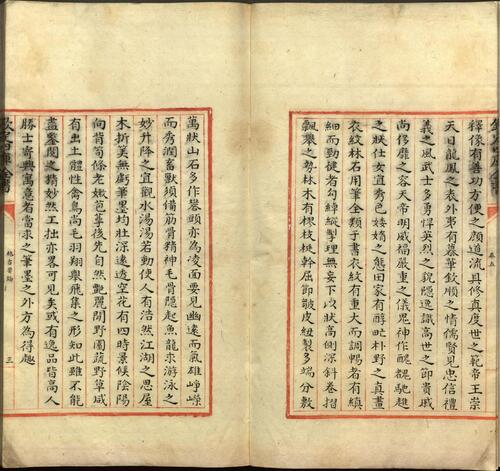 卷五
釋像有善功方便之顏道流具修真度世之範帝王崇
天日龍鳳之表外夷有慕華欽順之情儒賢見忠信禮
義之風武士多勇悍英烈之貌隱逸識高世之節貴戚
尚侈靡之容天帝明威福嚴重之儀鬼神作醜䰩馳趡
之狀仕女宜秀色婑媠之態田家有醇甿朴野之真畫
衣紋林石用筆全類于書衣紋有重大而調暢者有縝
細而勁徤者勾綽縱掣理無妄下以狀高側深斜卷摺
飄舉之勢林木有樛枝挺幹屈節皺皮紐裂多端分敷
萬狀山石多作礬頭亦為凌面要見幽遠而氣雄崢嶸
而秀潤畜獸須備筋骨精神毛骨隱起魚龍求游泳之
妙升降之宜觀水湯湯若動使人有浩然江湖之思屋
木折筭無虧筆墨均壯深遠透空花有四時景候陰陽
向背笋條老嫩苞萼後先自然艷麗閒野園蔬野草咸
有出土體性禽鳥尚毛羽翔舉飛集之形如此雖不能
盡鑒閲之精妙然工拙亦畧可見矣或有逸品皆高人
勝士寄興寓意者當求之筆墨之外方為得趣
格古要論
三